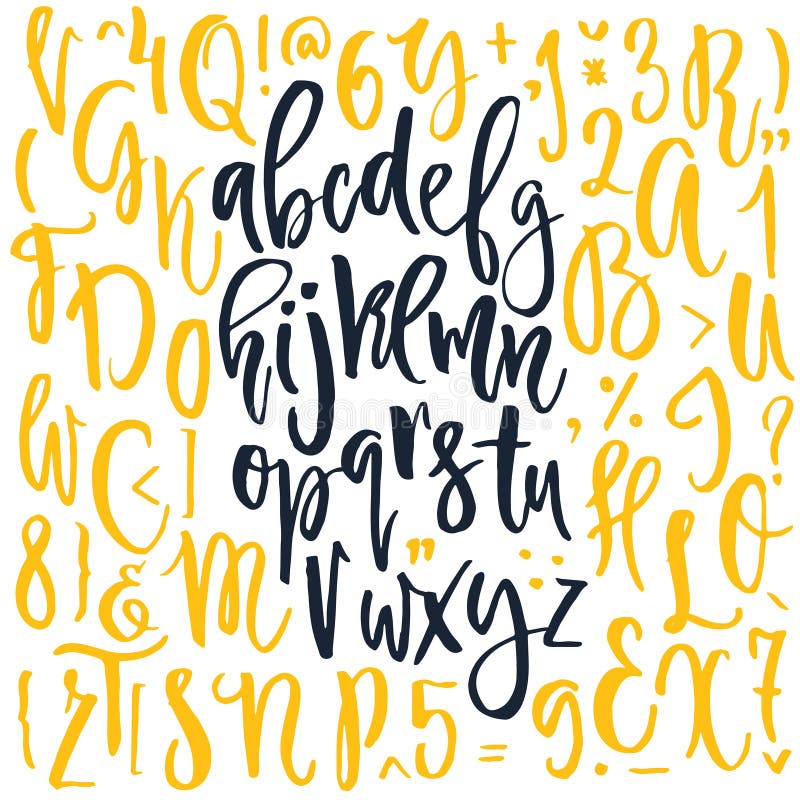 V ˆ 4 Q ! @ 6 Y + , J ˇ * 3 R / )
( G K 2 a 1 ”
abcdefg
F D O B > U
hijklmn
W C < ] , % I ?
opqrstu
8 } & M ” H L O
vwxyz
{ Z T [ S N P ^ 5 = 9 . E _ X 7 ˇ